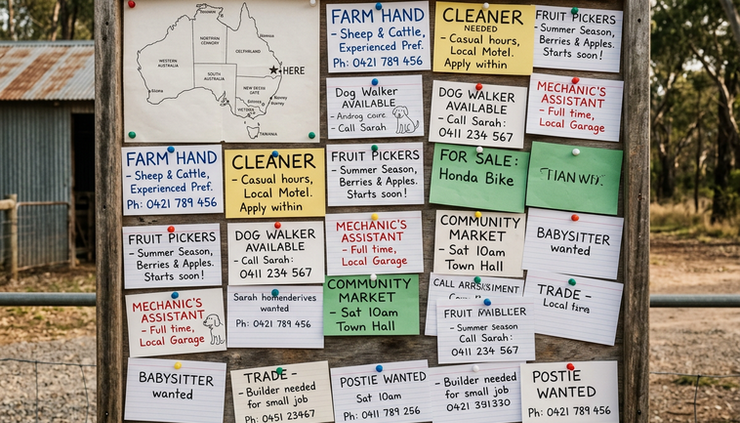 WESTERN
AUSTRALIA
SOUTH
AUSTRALIA
HERE
TASMANIA
FARM HAND
- Sheep & Cattle,
Experienced Pref.
Ph: 0421 789 456
CLEANER
NEEDED
- Casual hours,
Local Motel.
Apply within
FRUIT PICKERS
- Summer Season,
Berries & Apples.
Starts soon!
Dog Walker
AVAILABLE
- Call Sarah
DOG WALKER
AVAILABLE
- Call Sarah:
0411 234 567
MECHANIC'S
ASSISTANT
- Full time,
Local Garage
FARM HAND
- Sheep & Cattle,
Experienced Pref.
Ph: 0421 789 456
CLEANER
- Casual hours,
Local Motel.
Apply within
FRUIT PICKERS
- Summer Season,
Berries & Apples.
Starts soon!
FOR SALE:
Honda Bike
FRUIT PICKERS
- Summer Season,
Berries & Apples.
Starts soon!
DOG WALKER
AVAILABLE
- Call Sarah:
0411 234 567
MECHANIC'S
ASSISTANT
- Full time,
Local Garage
COMMUNITY
MARKET
- Sat 10am
Town Hall
BABYSITTER
wanted
MECHANIC'S
ASSISTANT
- Full time,
Local Garage
Sarah homenderives
wanted
Ph: 0421 789 456
COMMUNITY
MARKET
- Sat 10am
Town Hall
CALL
FRUIT
- Summer season
Call Sarah:
0411 234 567
TRADE -
Local firm
BABYSITTER
wanted
TRADE -
- Builder needed
for small job
Ph: 0451 23467
POSTIE WANTED
Sat 10am
Ph: 0411 789 256
- Builder needed
for small job
0421 391330
POSTIE
WANTED
Ph: 0421 789 456